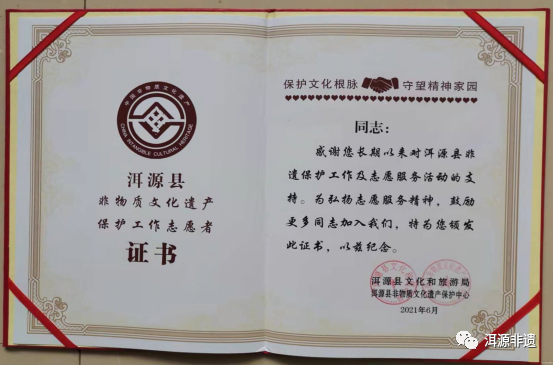 中国非物质文化遗产
CHINA INTANGIBLE CULTURAL HERITAGE
洱源县
非物质文化遗产
保护工作志愿者
证书
保护文化根脉 守望精神家园
同志：
感谢您长期以来对洱源县非
遗保护工作及志愿服务活动的支
持。为弘扬志愿服务精神，鼓励
更多同志加入我们，特为您颁发
此证书，以兹纪念。
洱源县文化和旅游局
洱源县非物质文化遗产保护中心
2021年6月
洱源非遗